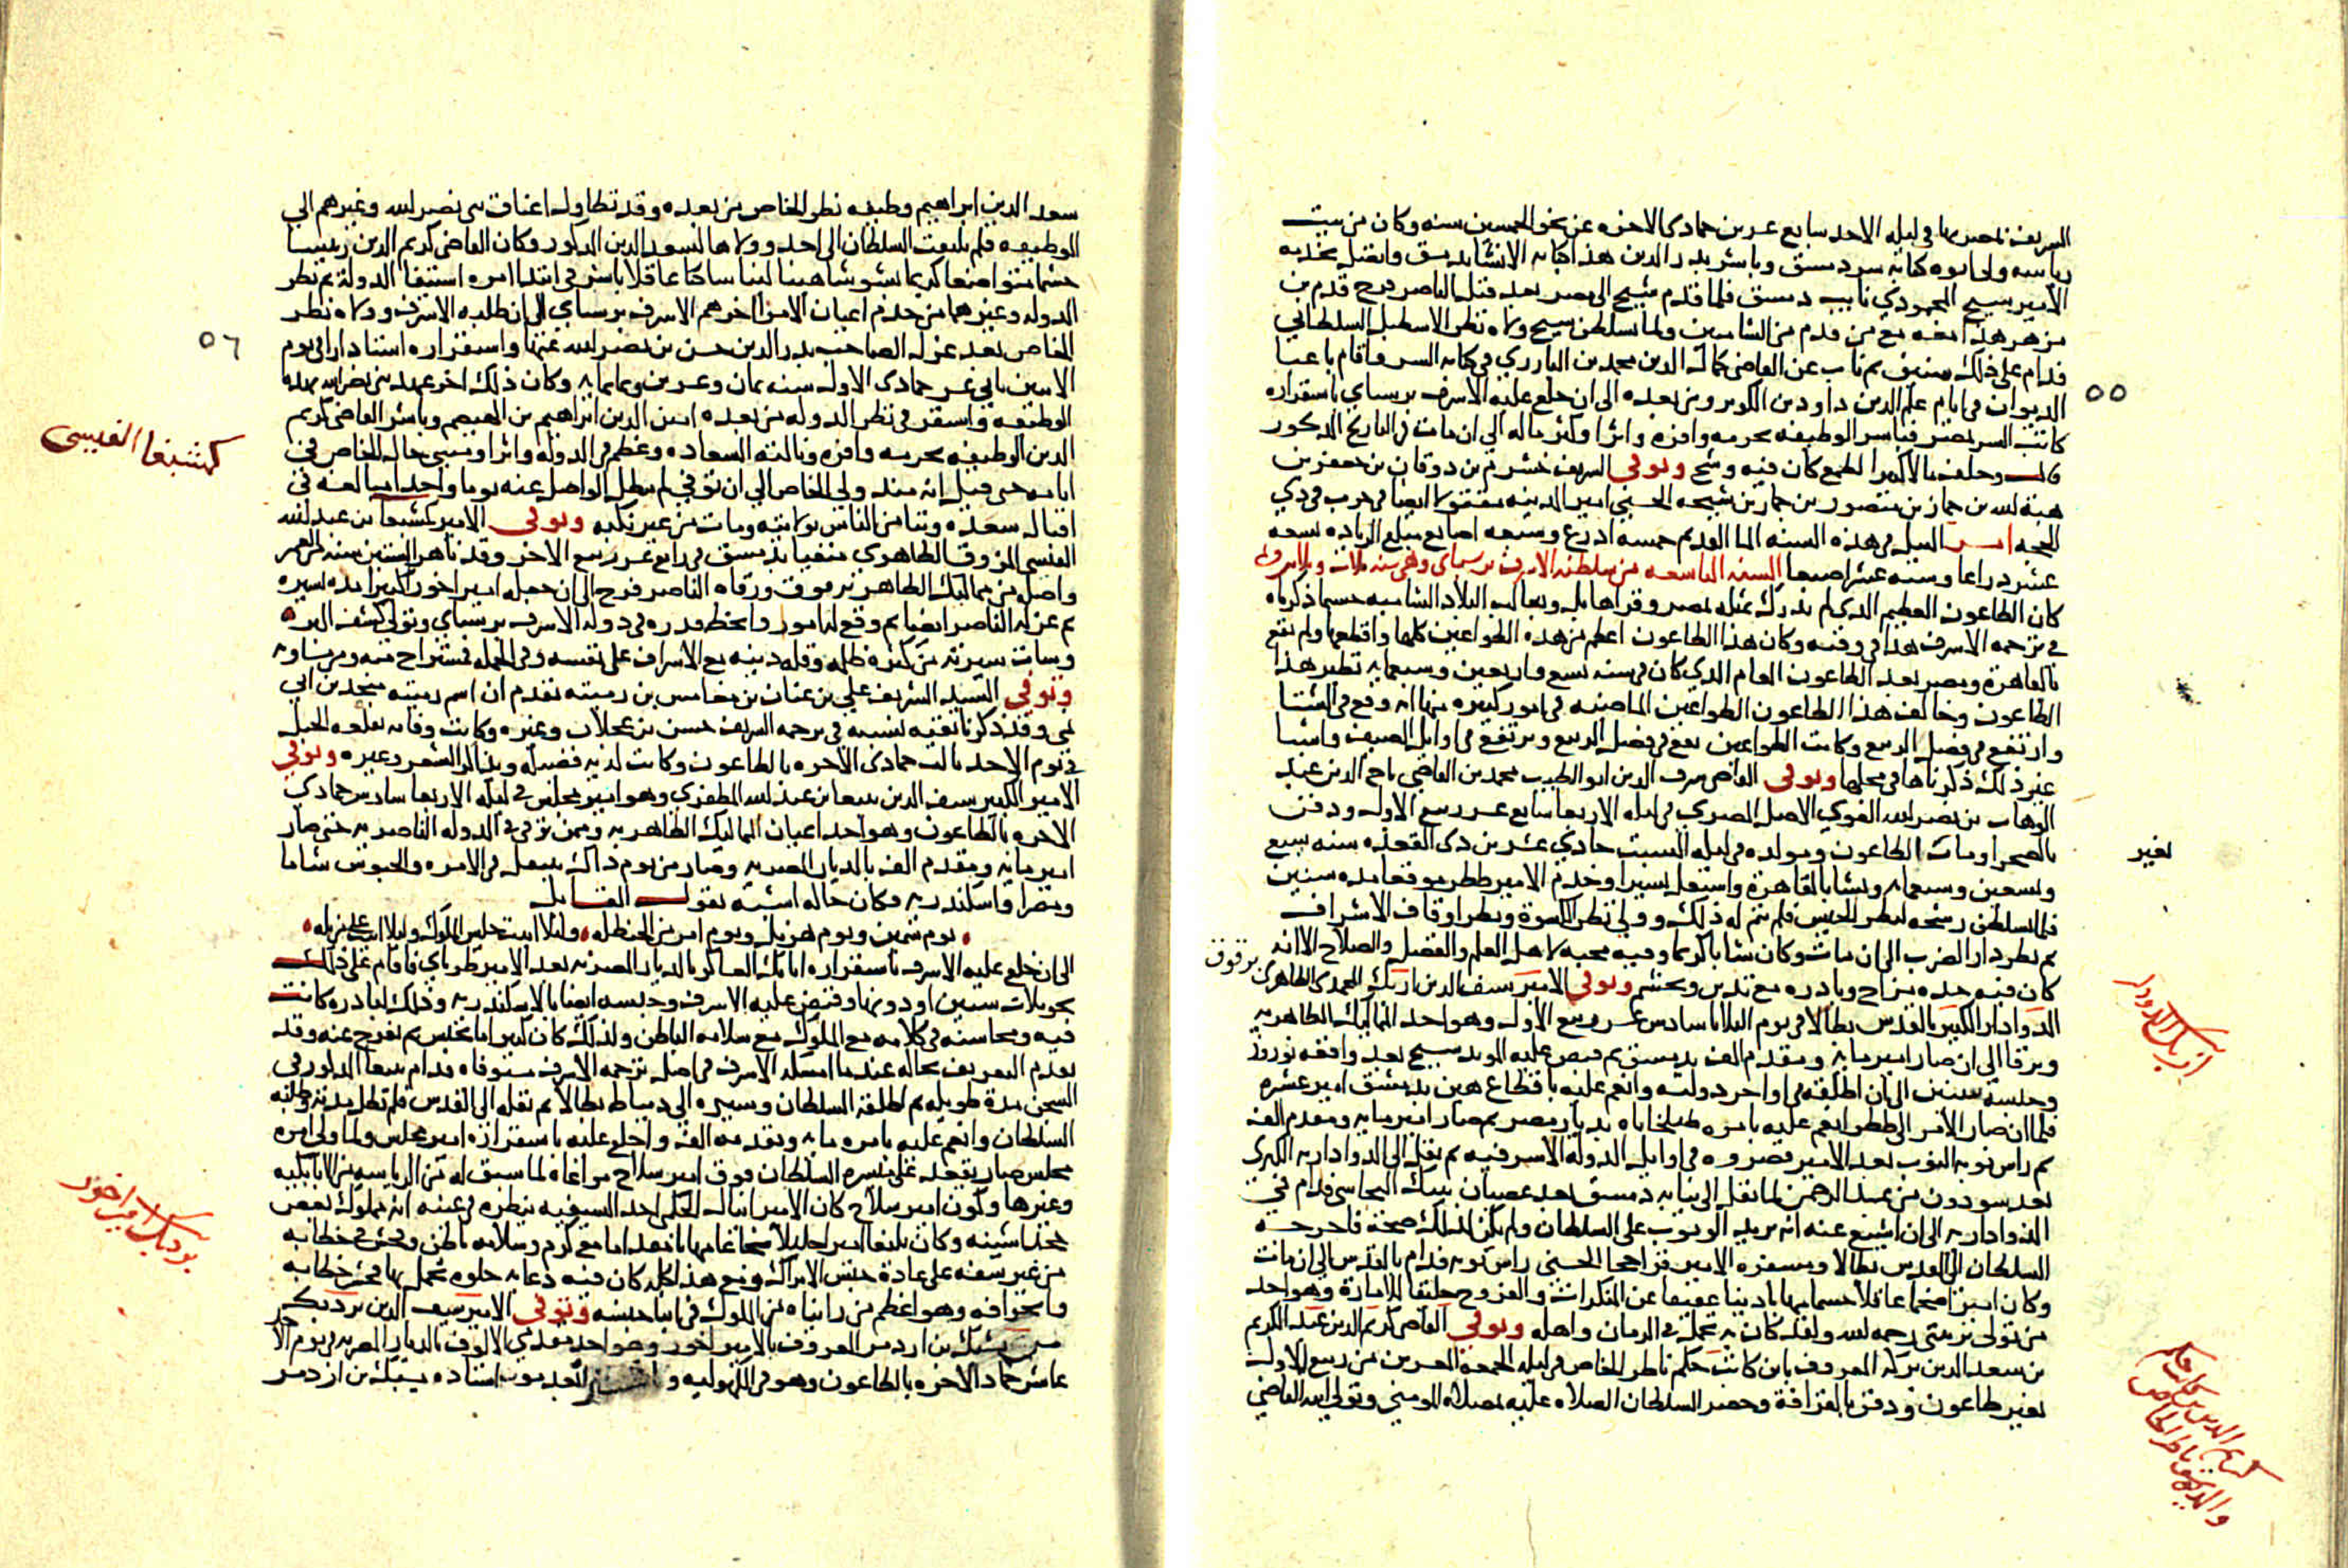 الشريف بمصر بها في ليلة الاحد سابع عشرين جمادى الاخره عن نحو الخمسين سنه وكان من بيت
رياسه ولى ابوه كتابه سر دمشق وباشر بدر الدين هذا كتابه الانشا بدمشق واتصل بخدمه
الامير شيخ المحمودي نايب دمشق فلما قدم شيخ الى مصر بعد قتل الناصر فرج قدم بن
مزهر هذا معه مع من قدم من الشاميين ولما تسلطن شيخ ولاه نظر الاسطبل السلطاني
فدام على ذلك سنين ثم ناب عن القاضي كمال الدين محمد بن البارزي في كتابه السر واقام باعبا
الديوان في ايام علم الدين داود بن الكويز ومن بعده الى ان خلع عليه الاشرف برسباي باستقراره
كاتب السر بمصر فباشر الوظيفه بحرمه وافره واثرا وكثر ماله الى ان مات في التاريخ المذكور
وخلف مالا كثيرا لطمع كان فيه وشح وتوفي الشريف خشرم بن دوقان بن جعفر بن
هبة الله بن جماز بن منصور بن جماز بن شيحه الحسيني امير المدينه مقتولا ايضا في حرب في ذي
الحجه امر النيل في هذه السنه الما القديم خمسه اذرع وسبعه اصابع مبلغ الزياده تسعه
عشر ذراعا وسته عشر اصبعا السنه التاسعه من سلطنه الاشرف برسباي وهي سنه ثلاث وثلاثين
كان الطاعون العظيم الذي لم ندرك بمثله بمصر وقراها بل وبغالب البلاد الشاميه حسبما ذكرناه
في ترجمه الاشرف هذا في وقته وكان هذا الطاعون اعظم من هذه الطواعين كلها وافظعها ولم يقع
بالقاهرة ومصر بعد الطاعون العام الذي كان في سنه تسع واربعين وسبعمايه نظير هذا
الطاعون وخالف هذا الطاعون الطواعين الماضيه في امور كثيره منها انه وقع في الشتا
وارتفع في فصل الربيع وكانت الطواعين تقع في فصل الربيع وترتفع في اوايل الصيف واشيا
غير ذلك ذكرناها في محلها وتوفي القاضي شرف الدين ابو الطيب محمد بن القاضي تاج الدين عبد
الوهاب بن نصر الله الفوي الاصل المصري في ليله الاربعا سابع عشر ربيع الاول ودفن
بالصحرا ومات الطاعون ومولده في ليله السبت حادي عشرين ذي القعده سنه سبع
وتسعين وسبعمايه ونشا بالقاهرة واشتغل يسيرا وخدم الامير ططر موقعا مده سنين
فلما تسلطن رشحه لنظر الجيش فلم يتم له ذلك وولي نظر الكسوة ونظر اوقاف الاشراف
ثم نظر دار الضرب الى ان مات وكان شابا كريما وفيه محبه لاهل العلم والفضل والصلاح الا انه
كان فيه حده مزاج وبادره مع تدين وتحشم وتوفي الامير سيف الدين ازبك المحمدي الظاهري برقوق
الدوادار الكبير بالقدس بطالا في يوم الثلاثا سادس عشر ربيع الاول وهو احد المماليك الظاهريه
وترقا الى ان صار امير مايه ومقدم الف بدمشق ثم قبض عليه المويد شيخ بعد واقعه نوروز
وحبسه سنين الى ان اطلقه في اواخر دولته وانعم عليه باقطاع هين بدمشق امير عشره
فلما ان صار الامر الى ططر انعم عليه بامره طبلخاناه بديار مصر ثم صار امير مايه ومقدم الف
ثم راس نوبه النوب بعد الامير قصروه في اوايل الدوله الاشرفيه ثم نقل الى الدواداريه الكبرى
بعد سودون من عبد الرحمن لما نقل الى نيابه دمشق بعد عصيان تنبك البجاسي فدام في
الدواداريه الى ان اشيع عنه انه يريد الوثوب على السلطان ولم يكن لذلك صحة فاخرجه
السلطان الى القدس بطالا ومسفره الامير قراجا الحسني راس نوبه فدام بالقدس الى ان مات
وكان اميرا ضخما عاقلا حسما مهابا دينا عفيفا عن المنكرات والفروج خليقا للامارة وهو احد
من تولى تربيتي رحمه الله ولقد كان به تجمل في الزمان واهله وتوفي القاضي كريم الدين عبد الكريم
بن سعد الدين بركه المعروف بابن كاتب جكم ناظر الخاص في ليله الجمعة العشرين من ربيع الاول
بغير طاعون ودفن بالقرافة وحضر السلطان الصلاه عليه بمصلاه المومني وتولي ابنه القاضي
٥٥
بغير
ازبك الدوادار
كريم الدين بن كاتب جكم
سعد الدين ابراهيم وظيفه نظر الخاص من بعده وقد تطاول اعناق بني نصر الله وغيرهم الى
الوظيفه فلم يلتفت السلطان الى احد وولاها لسعد الدين المذكور وكان القاضي كريم الدين رييسا
حشما متواضعا كريما بشوشا هينا لينا ساكنا عاقلا باشر في ابتدا امره استيفا الدولة ثم نظر
الدوله وغيرهما من خدم اعيان الامرا اخرهم الاشرف برسباي الى ان طلبه الاشرف وولاه نظر
الخاص بعد عزل الصاحب بدر الدين حسن بن نصر الله عنها واستقراره استادارا في يوم
الاثنين ثاني عشر جمادى الاولى سنه ثمان وعشرين وثمانمايه وكان ذلك اخر عهد بني نصر الله بهذه
الوظيفه واستقر في نظر الدوله من بعده امين الدين ابراهيم بن الهيصم وباشر القاضي كريم
الدين الوظيفه بحرمه وافره ونالته السعاده وعظم في الدوله واثرا ومشي حال الخاص في
ايامه حتى قيل انه منذ ولى الخاص الى ان توفي لم يبطل الواصل عنه يوما واحدا مبالغه في
اقبال سعده وتيامن الناس بولايته ومات من غير نكبه وتوفي الامير كمشبغا بن عبد الله
الفيسي المزوق الظاهري منفيا بدمشق في رابع عشر ربيع الاخر وقد ناهز الستين سنه من العمر
واصله من مماليك الظاهر برقوق ورقاه الناصر فرج الى ان جعله امير اخور كبيرا مده يسيره
ثم عزله الناصر ايضا ثم وقع له امور وانحط قدره في دوله الاشرف برسباي وتولى كشف البر
وسات سيرته من كثره ظلمه وقله دينه مع الاسراف على نفسه وفي الجمله فمستراح منه ومن مساويه
وتوفي السيد الشريف علي بن عنان بن مغامس بن رميثه تقدم ان اسم رميثه منجد بن ابي
نمي وقد ذكرنا بقيه نسبه في ترجمه الشريف حسن بن عجلان وغيره وكانت وفاته بقلعه الجبل
في يوم الاحد ثالث جمادى الاخره بالطاعون وكانت لديه فضيله ويذاكر الشعر وغيره وتوفي
الامير الكبير سيف الدين يبغا بن عبد الله المظفري وهو امير مجلس في ليله الاربعا سادس جمادى
الاخره بالطاعون وهو احد اعيان المماليك الظاهريه وممن ترقى في الدوله الناصريه حتى صار
امير مايه ومقدم الف بالديار المصريه وصار من يوم ذاك يتنقل في الامره والحبوس شاما
ومصرا واسكندريه فكان حاله اشبه بقول القايل
يوم بتيمن ويوم هزيل ويوم امر من الحنظله وليلا ابيت جليس الملوك وليلا ابيت على مزبله
الى ان خلع عليه الاشرف باستقراره اتابك العساكر بالديار المصريه بعد الامير طرباي فاقام على ذلك
نحو ثلاث سنين او دونها وقبض عليه الاشرف وحبسه ايضا بالاسكندريه وذلك لبادره كانت
فيه ومحاسنه في كلامه مع الملوك مع سلامه الباطن ولذلك كان كثيرا ما يحبس ثم يفرج عنه وقد
تقدم التعريف بحاله عند ما امسكه الاشرف في اصل ترجمه الاشرف مستوفاه فدام يبغا المذكور في
السجن مدة طويله ثم اطلقه السلطان وسيره الى دمياط بطالا ثم نقله الى القدس فلم تطل مدته وطلبه
السلطان وانعم عليه بامره مايه وتقدمه الف واخلع عليه باستقراره امير مجلس ولما ولى امره
مجلس صار يقعد على ميسره السلطان فوق امير سلاح مراعاة لما سبق له من الرياسه من الاتابكيه
وغيرها ولكون امير سلاح كان الامير اينال الجكمي احد السيفيه ينظره في عينه انه مملوك لبعض
خجداشيته وكان يبغا اميرا جليلا شجاعا مهابا مقداما مع كرم وسلامه باطن وفحش في خطابه
من غير سفه على عادة جنس الاتراك ومع هذا كله كان فيه دعابه حلوه تحمل بها فحش خطابه
وانحرافه وهو اعظم من راينا من الملوك في ابنا جنسه وتوفي الامير سيف الدين بردبك
من يشبك بن ازدمر المعروف بالامير اخور وهو احد مقدمي الالوف بالديار المصريه في يوم الاحد
عاشر جماد الاخره بالطاعون وهو في الكهوليه و بعد موت استاده يشبك بن ازدمر
٥٦
كمشبغا الفيسي
بردبك امير اخور